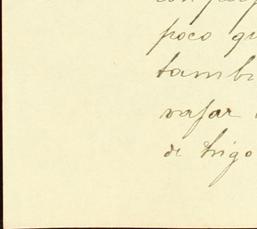 poco qu
tambi
vasar
de trigo